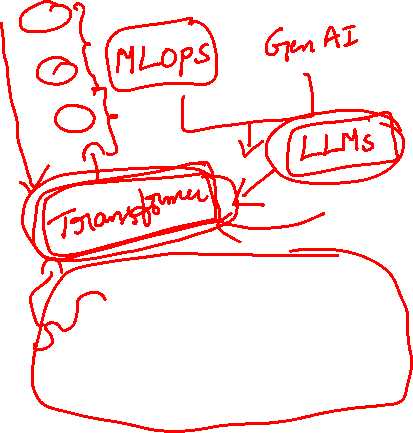 MLOps
Gen AI
LLMs
Transformer